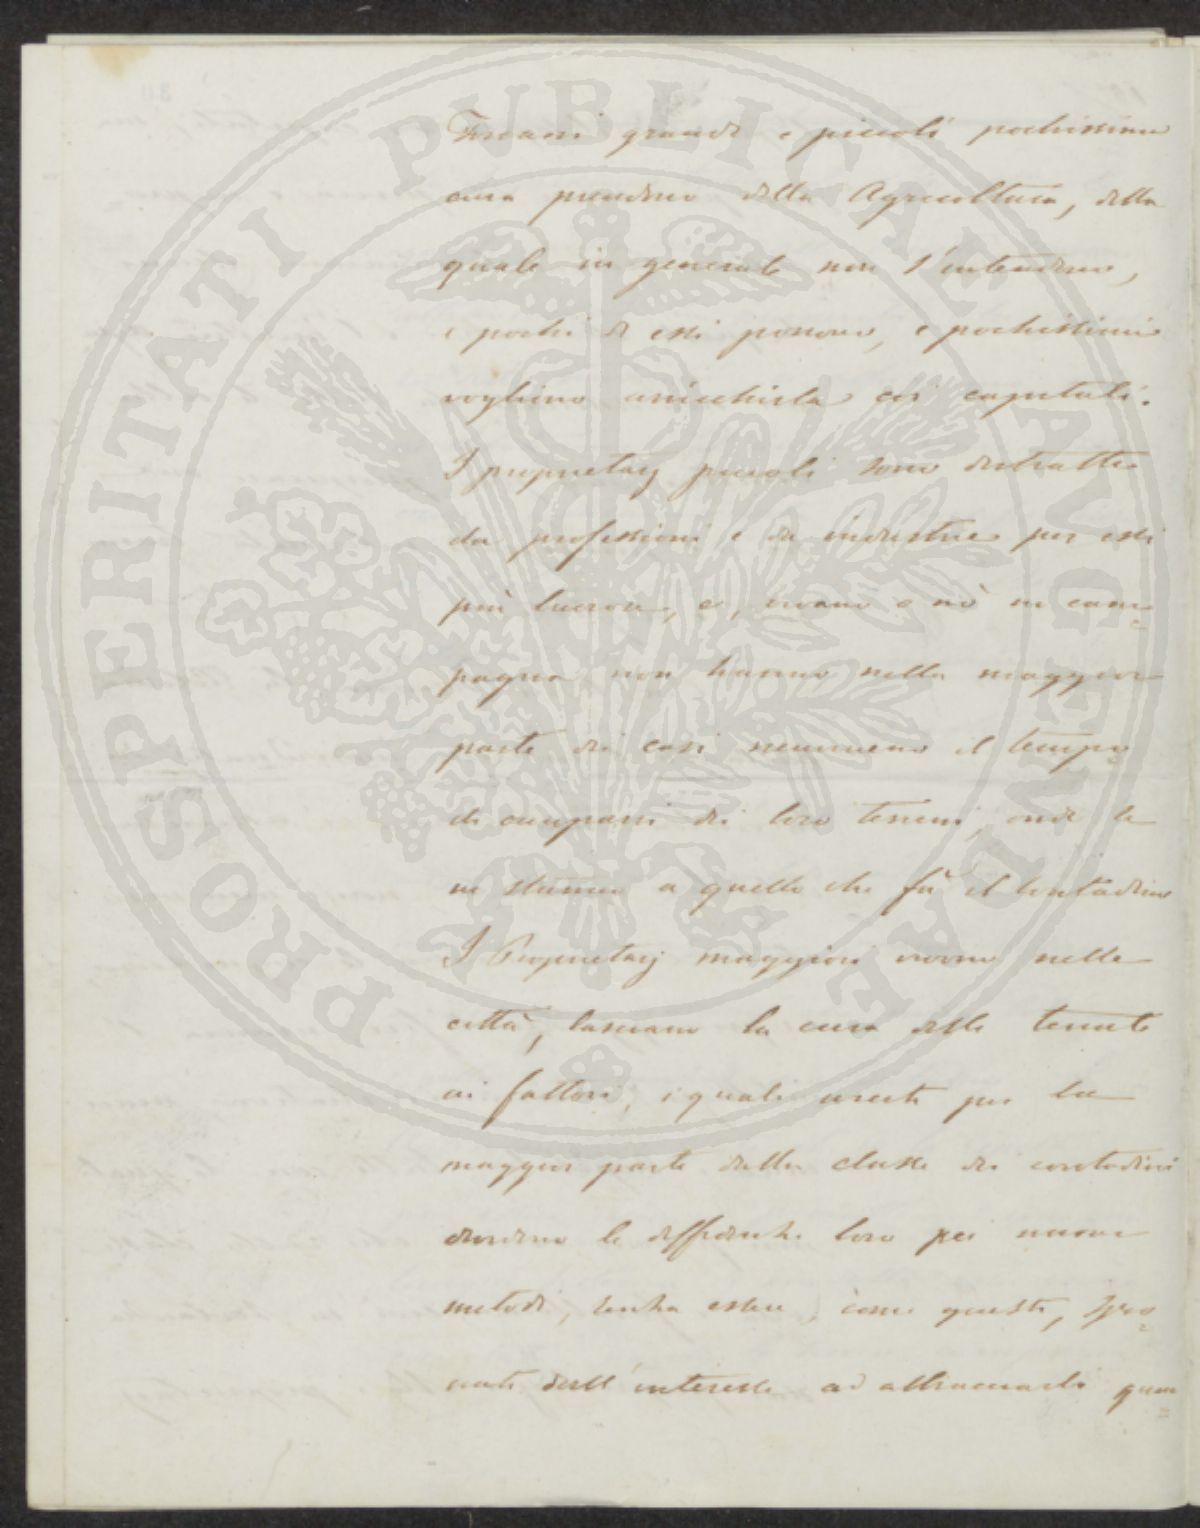 Toscani grandi e piccoli pochissima
cura prendono della Agricoltura, della
quale in generale non s'intendono,
e pochi di essi possono, e pochissimi
vogliono arricchirla coi capitali.
I proprietarj piccoli sono distratti
da professioni e da industrie per essi
più lucrose, e, vivano o nò in cam=
pagna non hanno nella maggior
parte dei casi nemmeno il tempo
di occuparsi dei loro terreni, onde se
ne stanno a quello che fà il Contadino
I Proprietarj maggiori vivono nelle
città, lasciano la cura delle tenute
ai fattori, i quali usciti per la
maggior parte dalla classe dei contadini
dividono le diffidenze loro pei nuovi
metodi, senza essere, come questi, spro=
nati dall'interesse ad abbracciarli quan=
PROSPERITATI PVBLICAE AVGENDAE